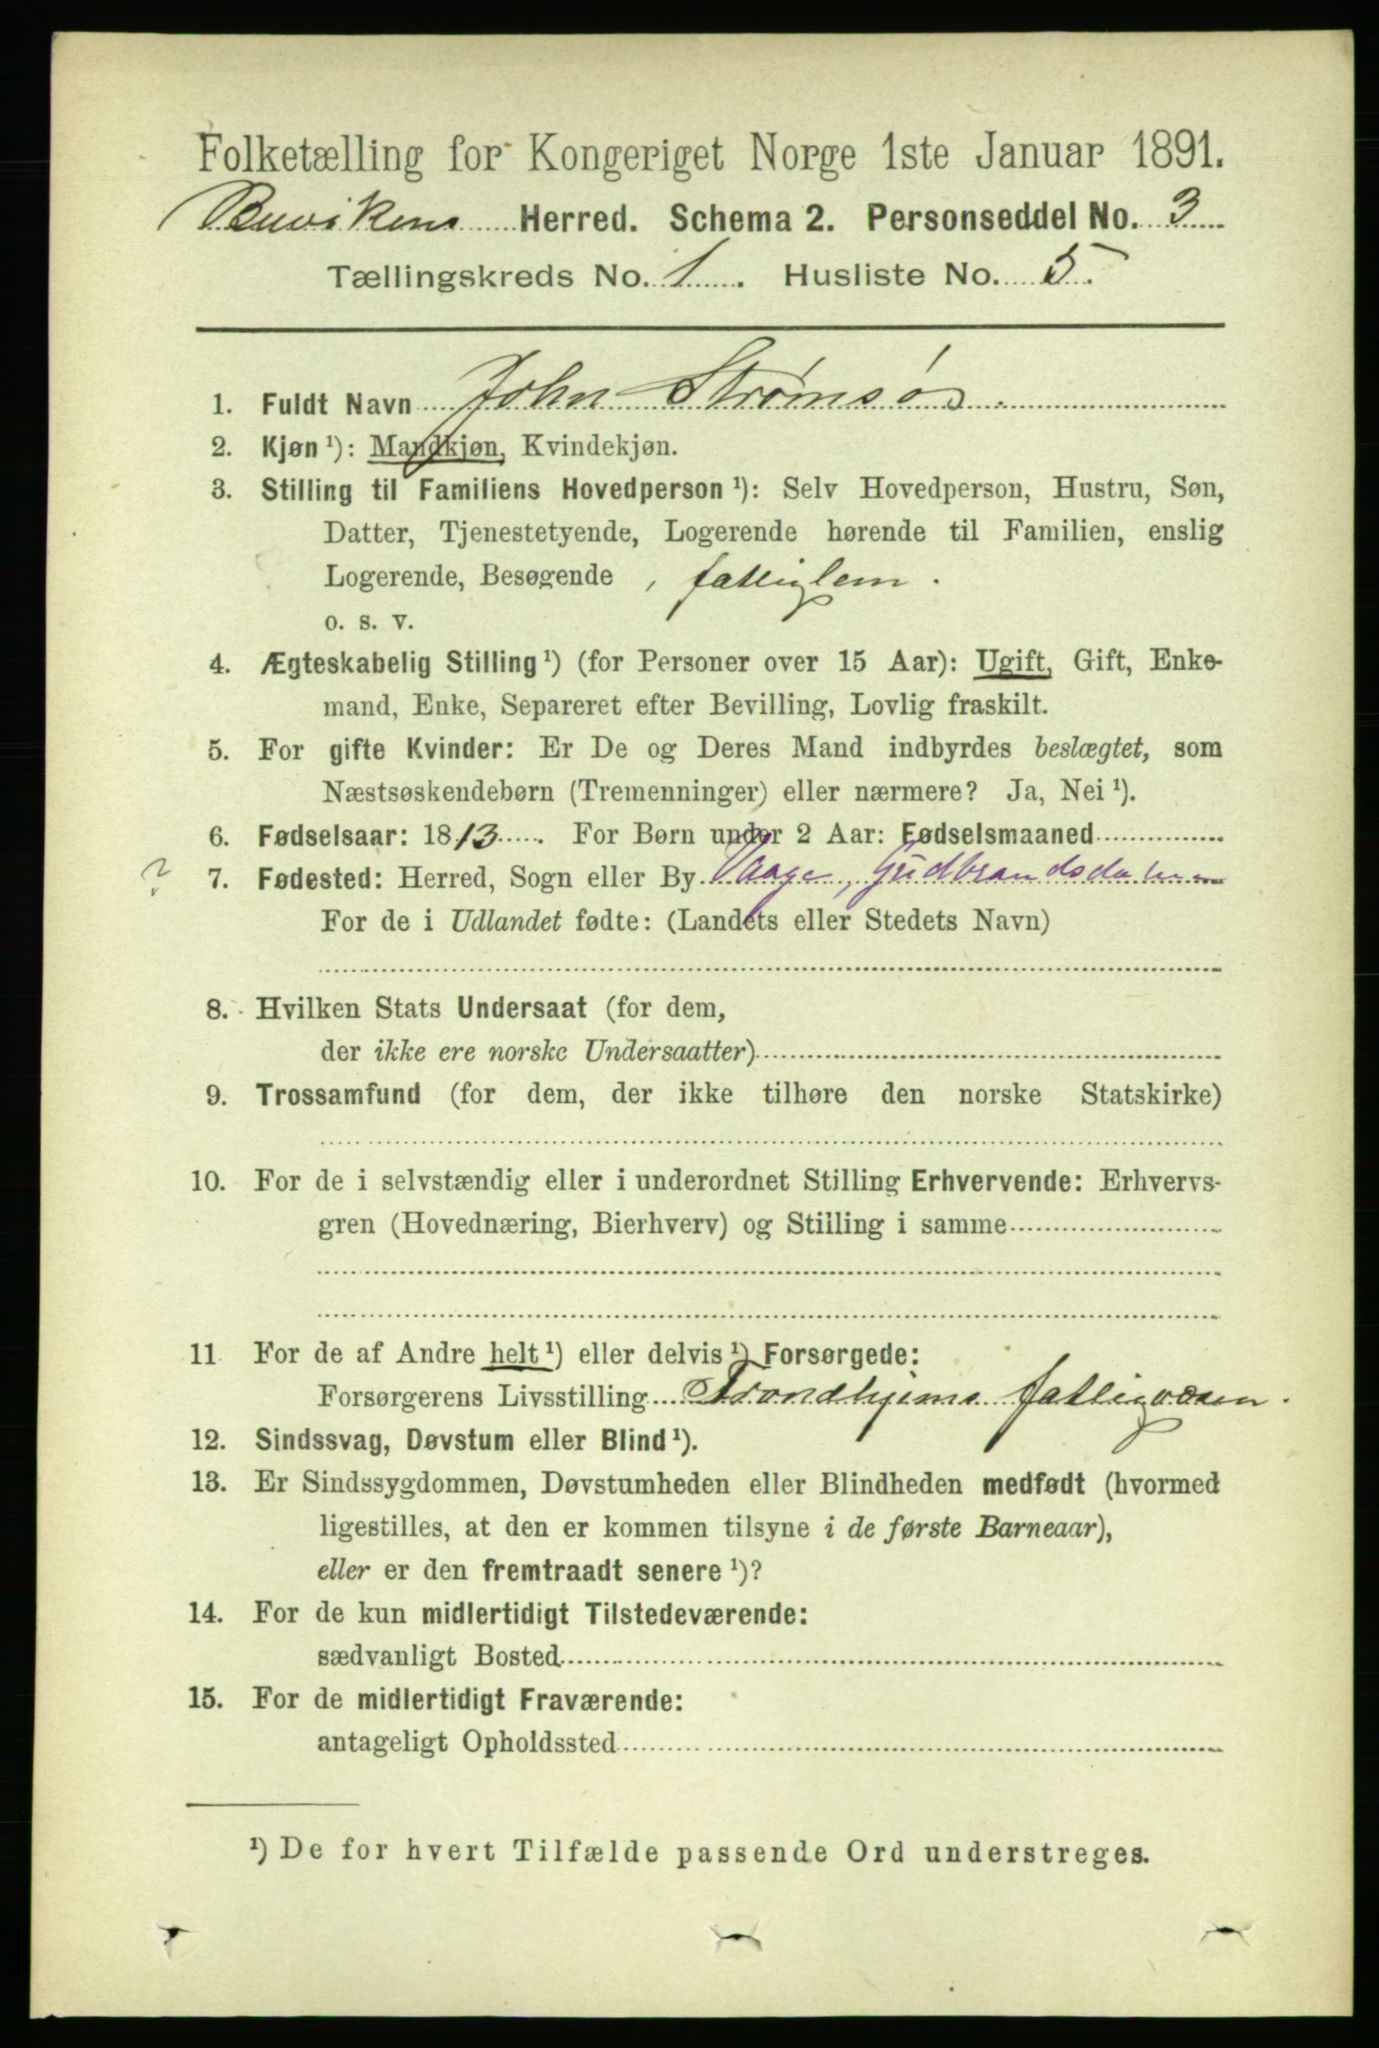 Folketælling for Kongeriget Norge 1ste Januar 1891.
Buvikens Herred. Schema 2. Personseddel No. 3
Tællingskreds No. 1. Husliste No. 5.
1. Fuldt Navn John Strømsøe.
2. Kjøn ¹): Mandkjøn, Kvindekjøn.
3. Stilling til Familiens Hovedperson ¹): Selv Hovedperson, Hustru, Søn,
Datter, Tjenestetyende, Logerende hørende til Familien, enslig
Logerende, Besøgende , fattiglem.
o. s. v.
4. Ægteskabelig Stilling ¹) (for Personer over 15 Aar): Ugift, Gift, Enke-
mand, Enke, Separeret efter Bevilling, Lovlig fraskilt.
5. For gifte Kvinder: Er De og Deres Mand indbyrdes beslægtet, som
Næstsøskendebørn (Tremenninger) eller nærmere? Ja, Nei ¹).
6. Fødselsaar: 1813. For Børn under 2 Aar: Fødselsmaaned
? 7. Fødested: Herred, Sogn eller By Vaage, Gudbrandsdalen
For de i Udlandet fødte: (Landets eller Stedets Navn)
8. Hvilken Stats Undersaat (for dem,
der ikke ere norske Undersaatter)
9. Trossamfund (for dem, der ikke tilhøre den norske Statskirke)
10. For de i selvstændig eller i underordnet Stilling Erhvervende: Erhvervs-
gren (Hovednæring, Bierhverv) og Stilling i samme
11 For de af Andre helt ¹) eller delvis ¹) Forsørgede:
Forsørgerens Livsstilling Trondhjems fattigvæsen.
12. Sindssvag, Døvstum eller Blind ¹).
13. Er Sindssygdommen, Døvstumheden eller Blindheden medfødt (hvormed
ligestilles, at den er kommen tilsyne i de første Barneaar),
eller er den fremtraadt senere ¹)?
14. For de kun midlertidigt Tilstedeværende:
sædvanligt Bosted
15. For de midlertidigt Fraværende:
antageligt Opholdssted
¹) De for hvert Tilfælde passende Ord understreges.